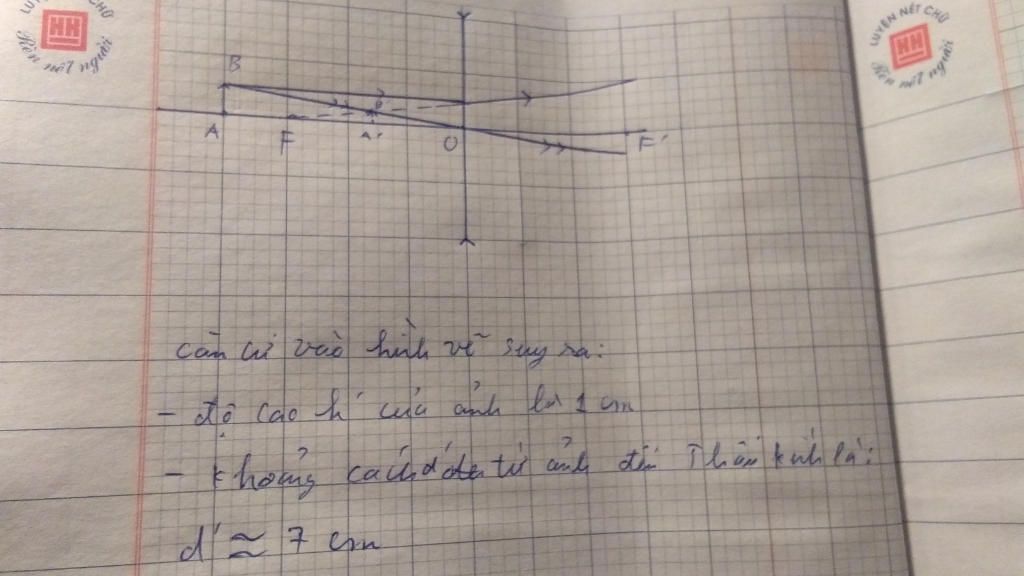 LUYỆN NÉT CHỮ
HH
Rèn nết người
LUYỆN NÉT CHỮ
HH
Rèn nết người
B
A F A' O F'
căn cứ vào hình vẽ suy ra:
- độ cao h' của ảnh là 1 cm
- khoảng cách d' từ ảnh đến Thấu kính là:
d' ≈ 7 cm